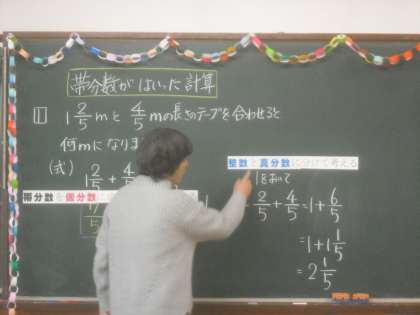 帯分数がはいった計算
1
1 2/5 mと 4/5 mの長さのテープを合わせると
何mになりま
(式) 1 2/5 + 4/5
帯分数を仮分数に
整数と真分数にわけて考える
1をおいて
2/5 + 4/5 = 1 + 6/5
= 1 + 1 1/5
= 2 1/5